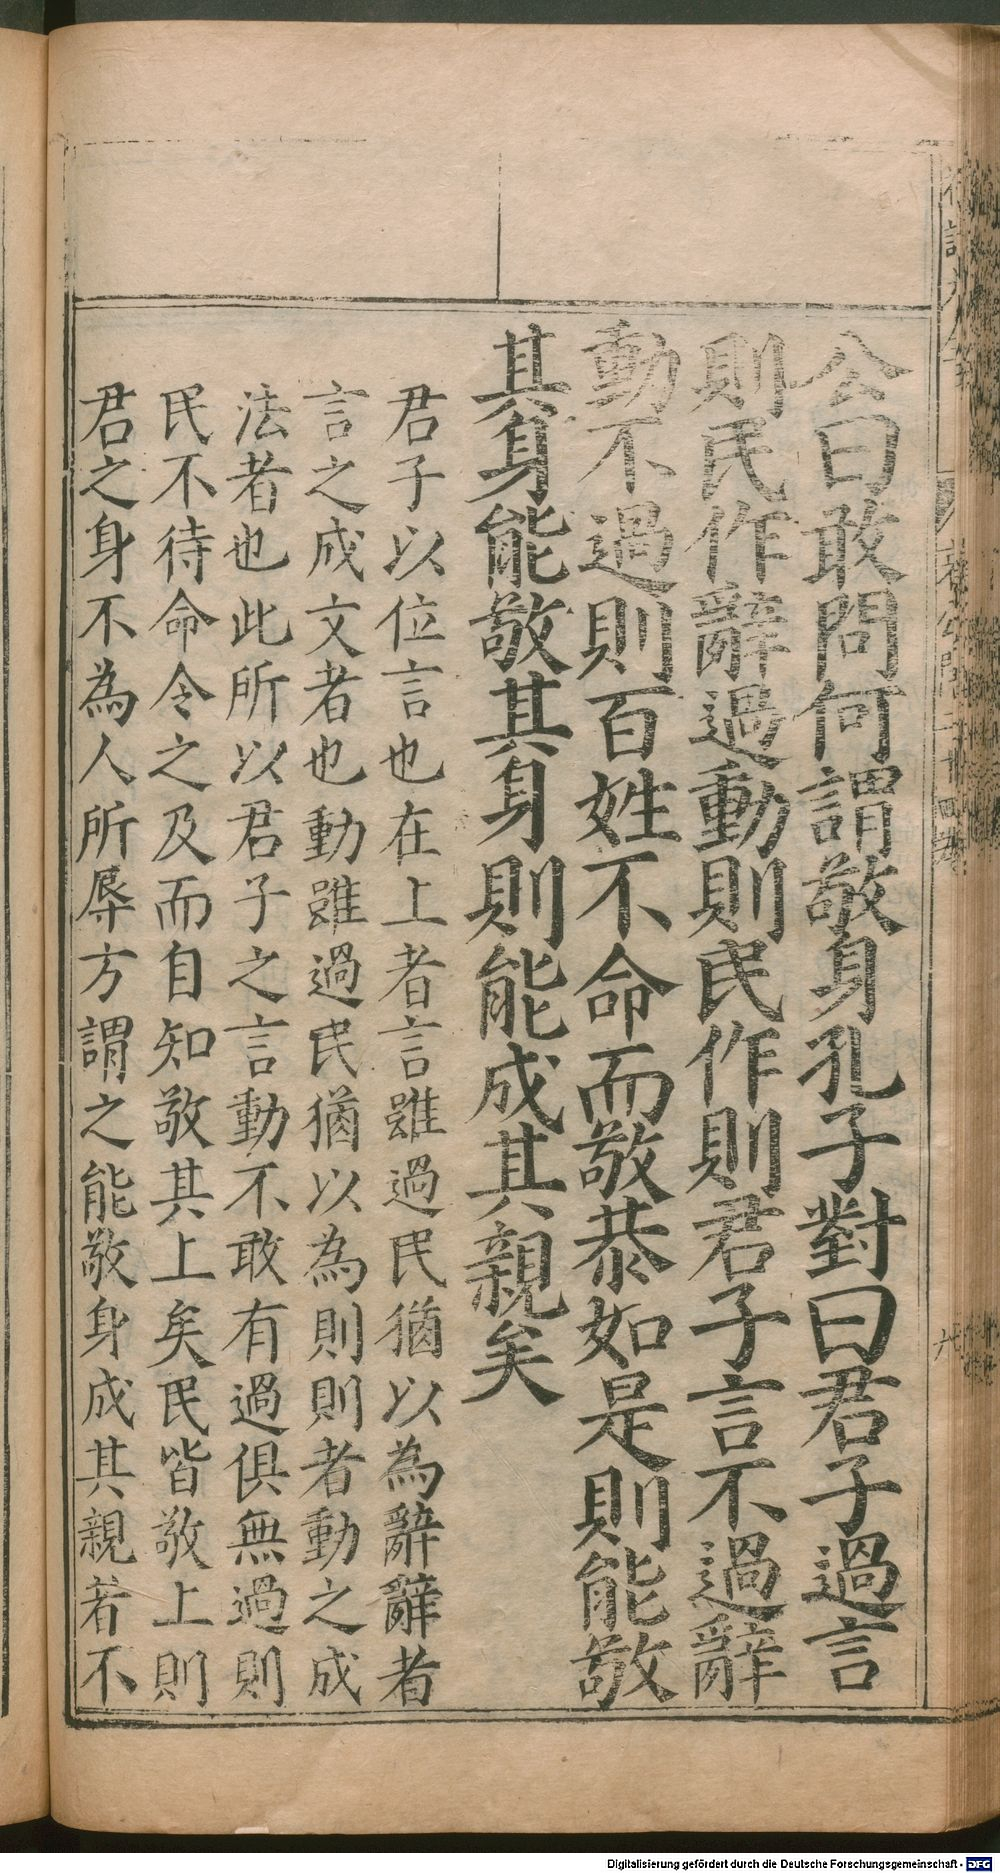 公曰敢問何謂敬身孔子對曰君子過言
則民作辭過動則民作則君子言不過辭
動不過則百姓不命而敬恭如是則能敬
其身能敬其身則能成其親矣
君子以位言也在上者言雖過民猶以為辭辭者
言之成文者也動雖過民猶以為則則者動之成
法者也此所以君子之言動不敢有過俱無過則
民不待命令之及而自知敬其上矣民皆敬上則
君之身不為人所辱方謂之能敬身成其親者不
哀公問二十四卷
九
Digitalisierung gefördert durch die Deutsche Forschungsgemeinschaft - DFG